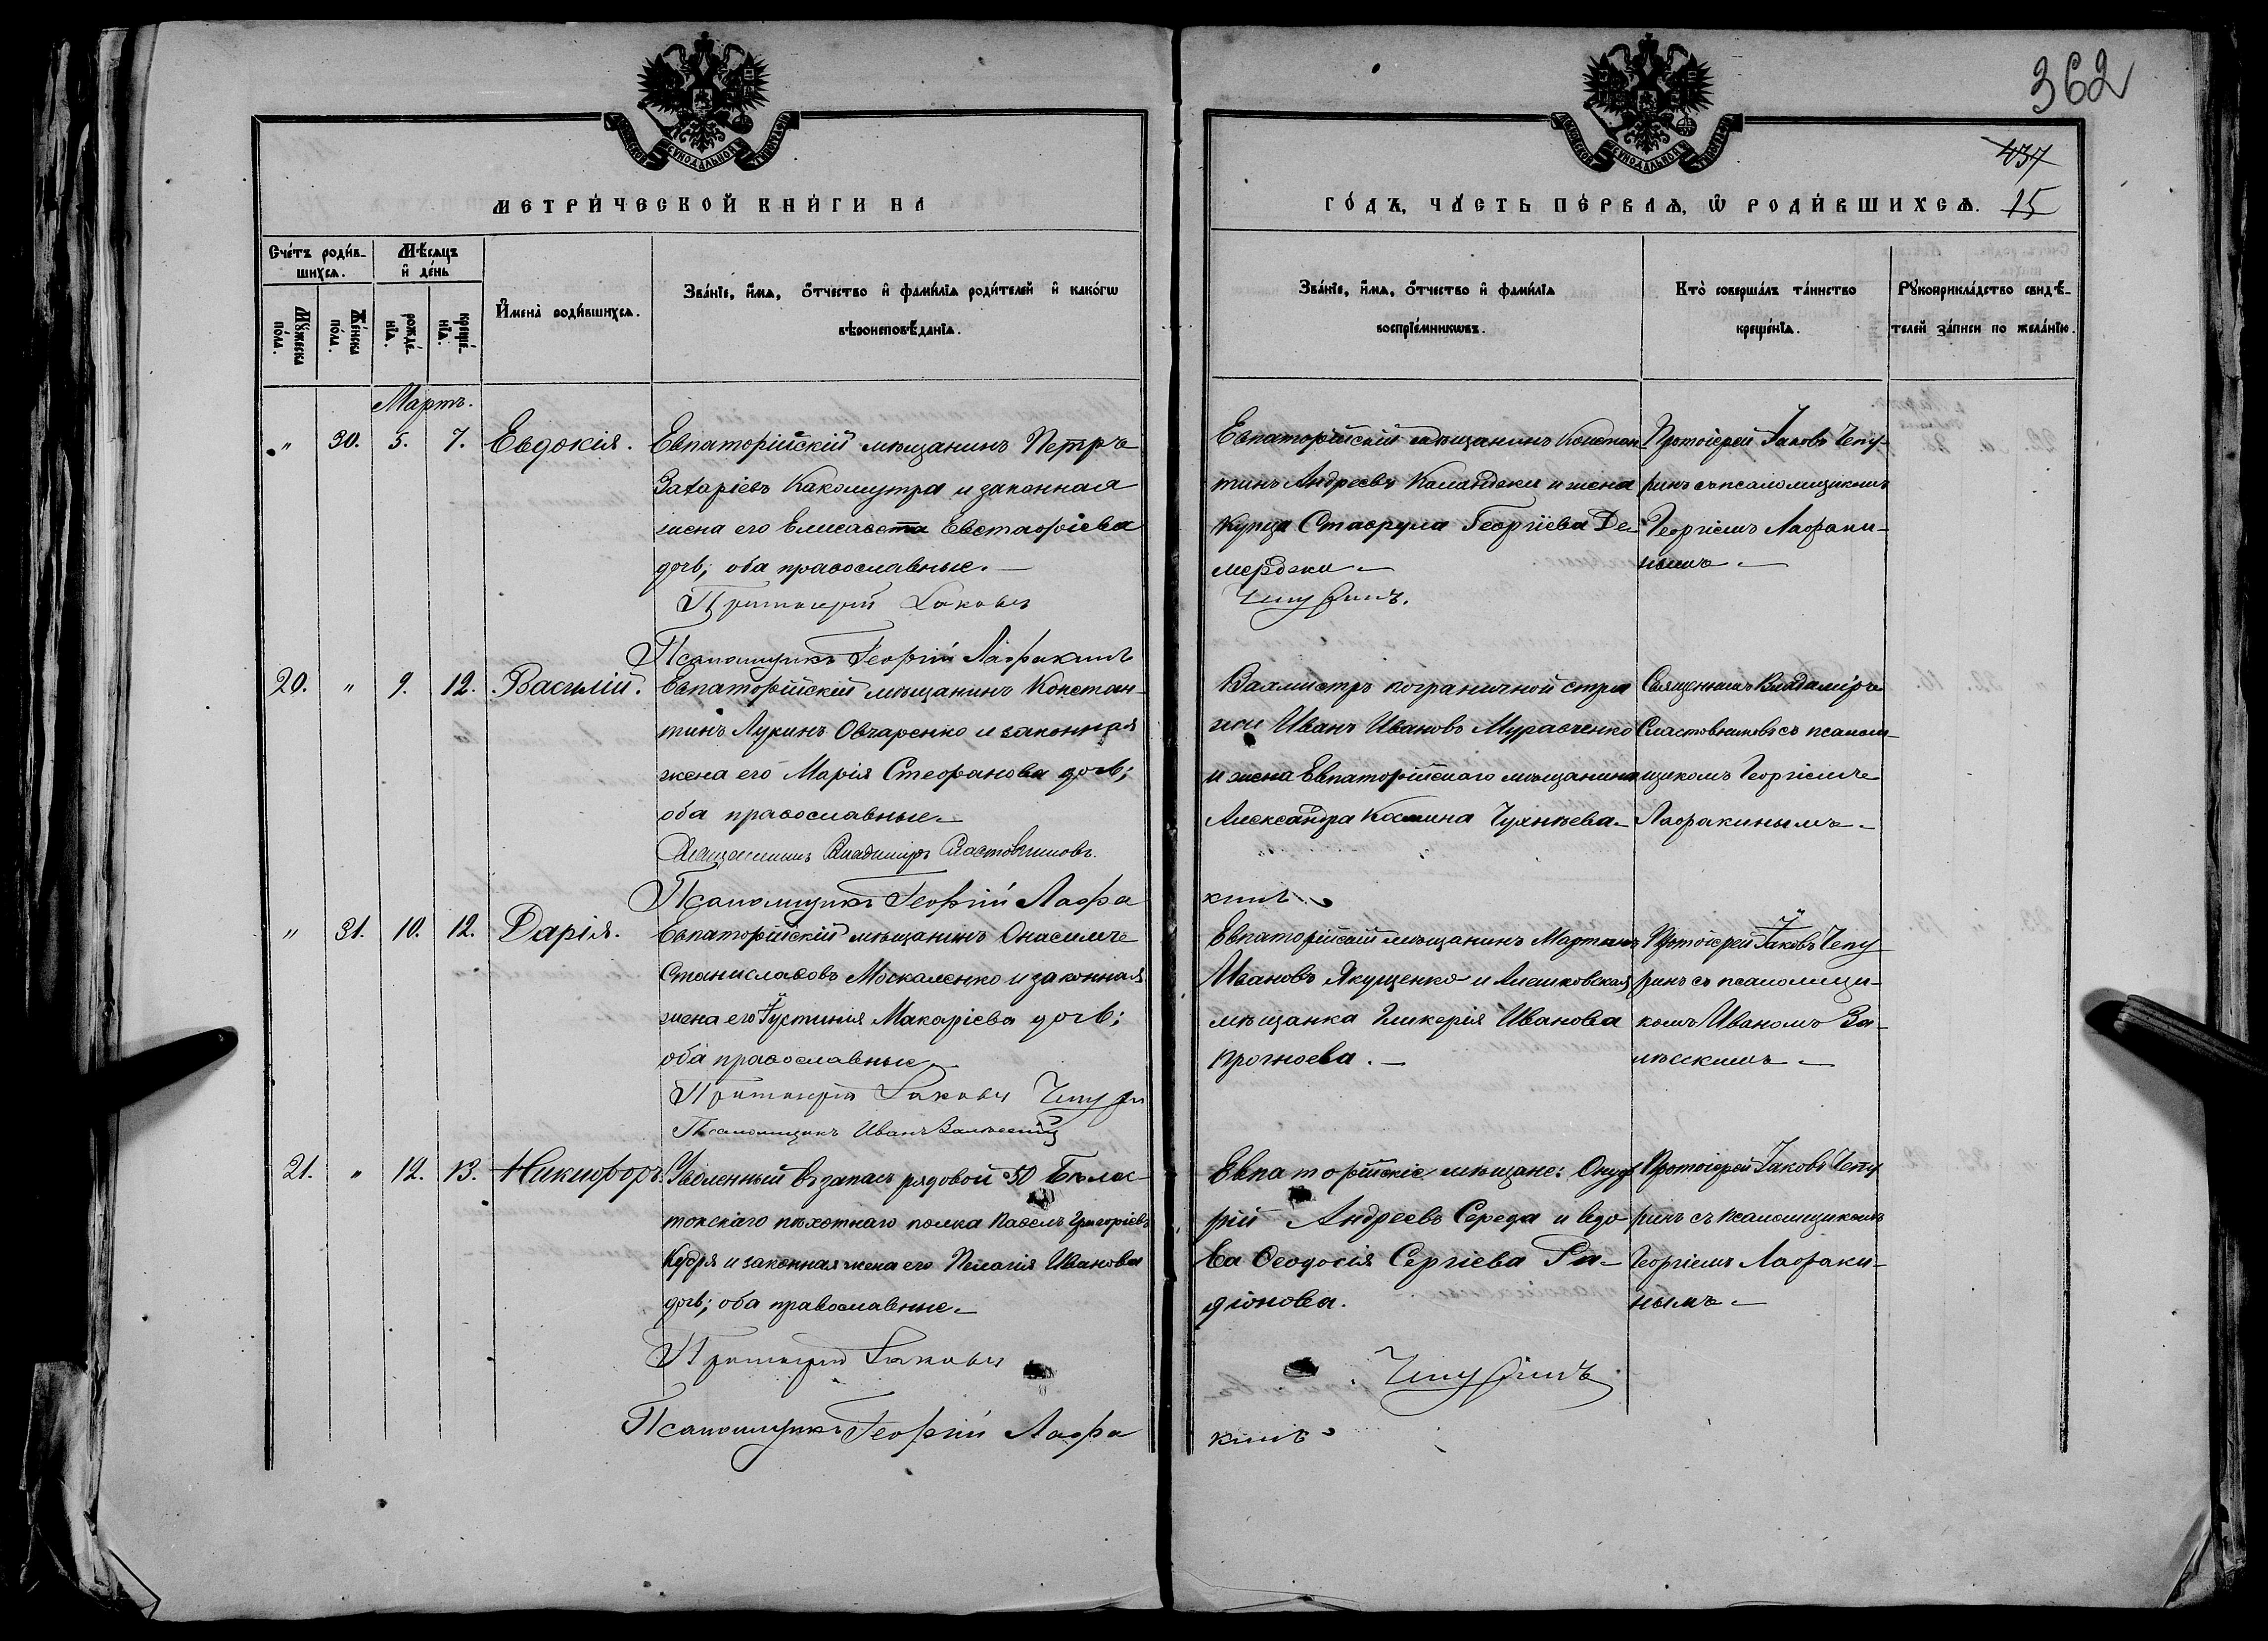 362
437
15
МЕТРИ́ЧЕСКОЙ КНИ́ГИ НА
ГО́ДЪ, ЧА́СТЬ ПЕ́РВАЯ, Ѡ РОДИ́ВШИХСЯ.
Сче́тъ роди́в-
шихся.
Мѣ́сяцъ
и де́нь
Му́жеска
по́ла.
Же́нска
по́ла.
рожде́-
нїя.
креще́-
нїя.
И҆мена̀ роди́вшихся.
Зва́нїе, и҆́мя, ѻ҆́тчество и҆ фами́лїя роди́телей и҆ како́гѡ
вѣроисповѣ́данїя.
Зва́нїе, и҆́мя, ѻ҆́тчество и҆ фами́лїя
воспрїе́мникѡвъ.
Кто̀ соверша́лъ та́инство
креще́нїя.
Рꙋкоприкла́дство свидѣ́-
телей за́писи по жела́нїю.
Мартъ.
" 30. 5. 7. Евдокія.
Евпаторійскій мѣщанинъ Петръ
Захаріевъ Какомутра и законная
жена его Елисавета Евстафіева
дочь; оба православные.
Протоіерей Іаковъ
Псаломщикъ Георгій Лафакинъ
Евпаторійскій мѣщанинъ Констан-
тинъ Андреевъ Каландоки и жена
купца Ставрула Георгіева Де-
мерджи
Чепуринъ.
Протоіерей Іаковъ Чепу-
ринъ съ псаломщикомъ
Георгіемъ Лафаки-
нымъ
20. " 9. 12. Василій.
Евпаторійскій мѣщанинъ Констан-
тинъ Лукинъ Овчаренко и законная
жена его Марія Стефанова дочь;
оба православные
Священникъ Владиміръ Сластовниковъ.
Псаломщикъ Георгій Лафа
Вахмистръ пограничной стра
жи Иванъ Ивановъ Муравченко
и жена Евпаторійскаго мѣщанина
Александра Космина
кинъ
Священникъ Владиміръ
Сластовниковъ съ псалом-
щикомъ Георгіемъ
Лафакинымъ
" 31. 10. 12. Дарія.
Евпаторійскій мѣщанинъ Онасимъ
Станиславовъ Москаленко и законная
жена его Іустинія Макаріева дочь;
оба православные
Протоіерей Іаковъ Чепури
Псаломщикъ Иванъ Залѣсскій
Евпаторійскій мѣщанинъ Мартинъ
Ивановъ Якущенко и Алешковская
мѣщанка Гликерія Иванова
Прогноева.
Протоіерей Іаковъ Чепу
ринъ съ псаломщи-
комъ Иваномъ За-
лѣсскимъ
21. " 12. 13. Никифоръ.
Уволенный въ запасъ рядовой 50 Бѣлос-
токскаго пѣхотнаго полка Павелъ Григоріевъ
Кудря и законная жена его Пелагія Иванова
дочь; оба православные
Протоіерей Іаковъ
Псаломщикъ Георгій Лафа
Евпаторійскіе мѣщане: Онуф
рій Андреевъ Середа и вдо
ва Ѳеодосія Сергіева Ро-
діонова.
Чепуринъ
кинъ
Протоіерей Іаковъ Чепу
ринъ съ псаломщикомъ
Георгіемъ Лафаки-
нымъ